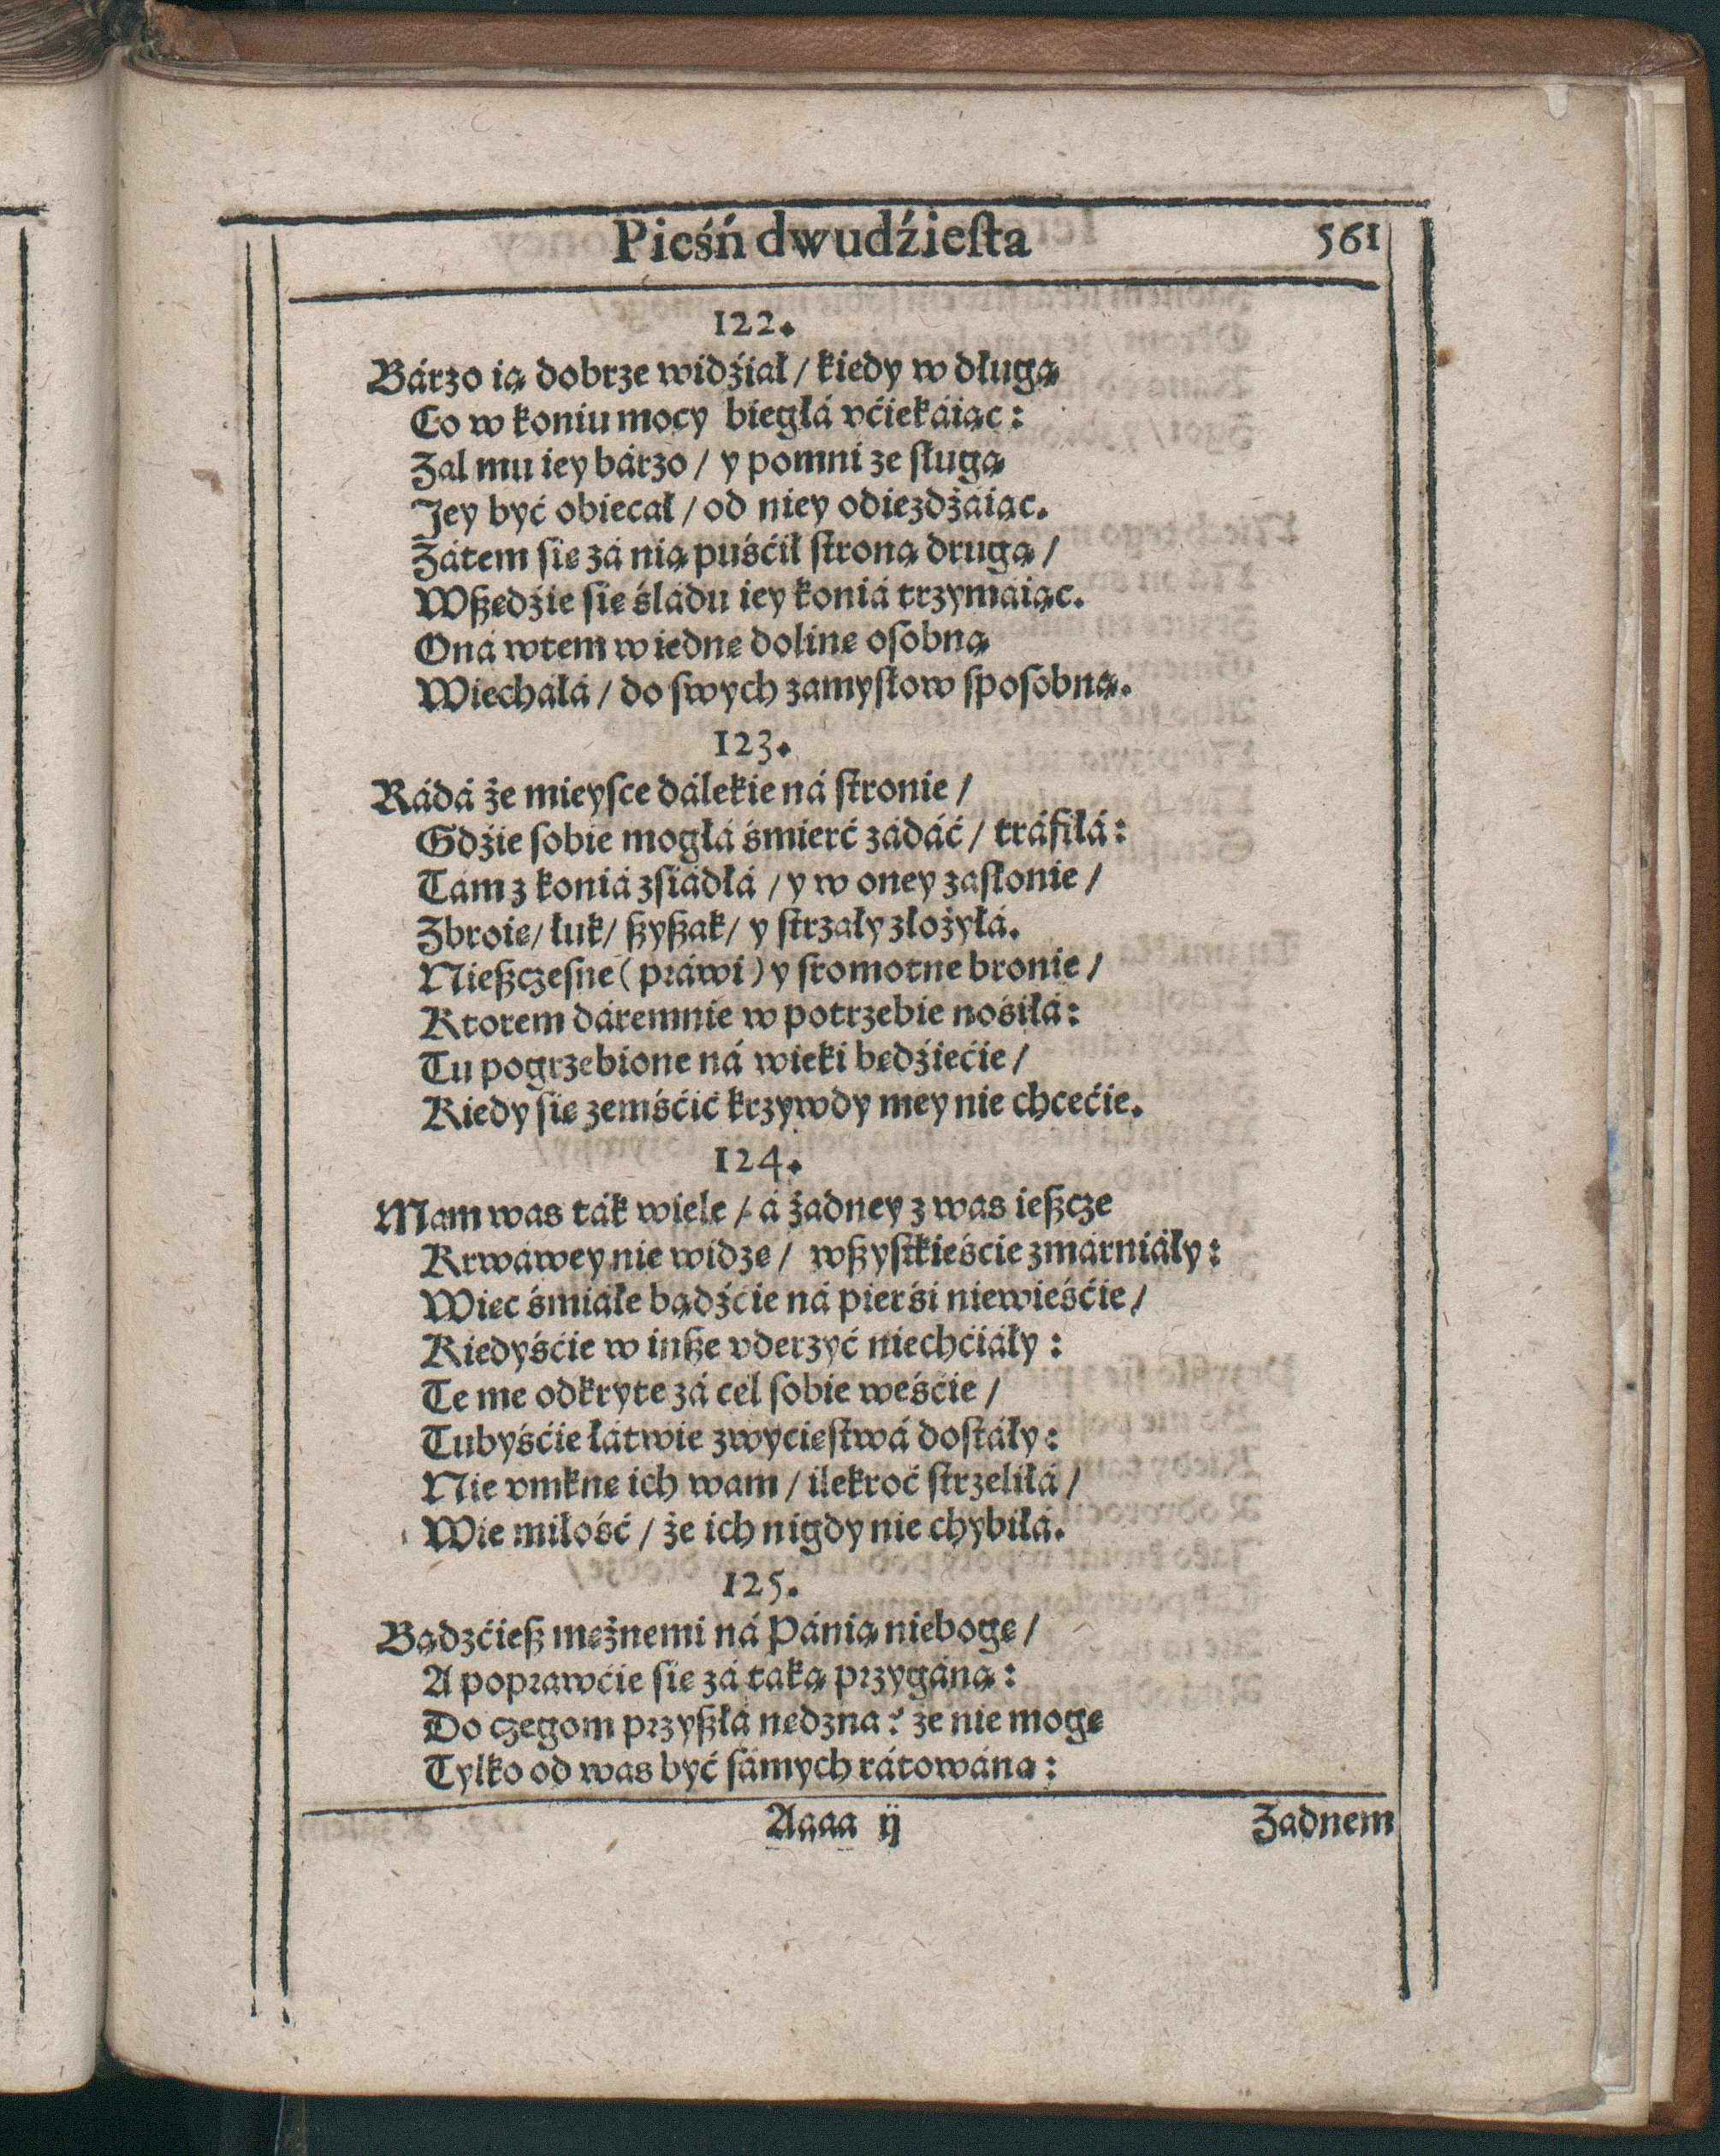 Pieśń dwudźiesta 561
122.
Bárzo ią dobrze widźiał / kiedy w długą
Co w koniu mocy biegłá vćiekáiąc:
Zal mu iey bárzo / y pomni ze sługą
Jey być obiecał / od niey odiezdżáiąc.
Zátem się zá nią puśćił stroną drugą /
Wszędźie się śládu iey koniá trzymáiąc.
Oná wtem w iednę dolinę osobną
Wiecháłá / do swych zamysłow sposobną.
123.
Rádá że mieysce dálekie ná stronie /
Gdźie sobie mogłá śmierć zádáć / tráfiłá:
Tám z koniá zsiádłá / y w oney zasłonie /
Zbroię / łuk / szyszak / y strzały złożyłá.
Nieszczęsne (práwi) y sromotne bronie /
Ktorem dáremnie w potrzebie nośiłá:
Tu pogrzebione ná wieki będźiećie /
Kiedy się zemśćić krzywdy mey nie chcećie.
124.
Mam was ták wiele / á żadney z was ieszcze
Krwáwey nie widzę / wszystkieśćie zmárniáły:
Więc śmiáłe bądźćie ná pierśi niewieśćie /
Kiedyśćie w insze vderzyć niechćiáły:
Te me odkryte zá cel sobie weśćie /
Tubyśćie łátwie zwyćięstwá dostáły:
Nie vmknę ich wam / ilekroć strzeliłá /
Wie miłość / że ich nigdy nie chybiłá.
125.
Bądzćiesz mężnemi ná Pánią niebogę /
A poprawćie się zá taką przygáną:
Do czegom przyszłá nędzna? że nie mogę
Tylko od was być sámych rátowána:
Aaaa ij Zadnem